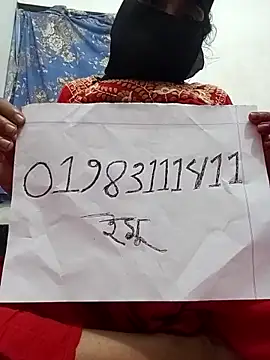 01983111411
ইমু